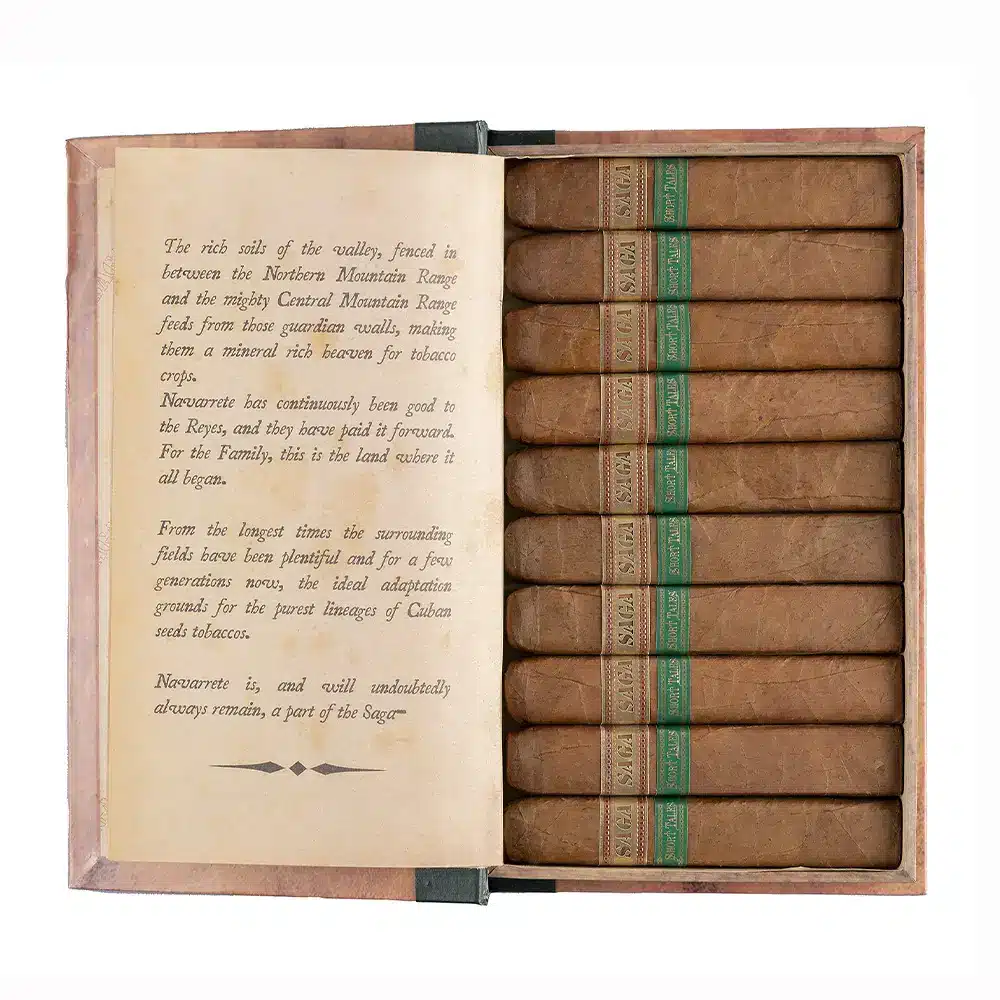 The rich soils of the valley, fenced in
between the Northern Mountain Range
and the mighty Central Mountain Range
feeds from those guardian walls, making
them a mineral rich heaven for tobacco
crops.
Navarrete has continuously been good to
the Reyes, and they have paid it forward.
For the Family, this is the land where it
all began.
From the longest times the surrounding
fields have been plentiful and for a few
generations now, the ideal adaptation
grounds for the purest lineages of Cuban
seeds tobaccos.
Navarrete is, and will undoubtedly
always remain, a part of the Saga
SAGA SHORT TALES
SAGA SHORT TALES
SAGA SHORT TALES
SAGA SHORT TALES
SAGA SHORT TALES
SAGA SHORT TALES
SAGA SHORT TALES
SAGA SHORT TALES
SAGA SHORT TALES
SAGA SHORT TALES